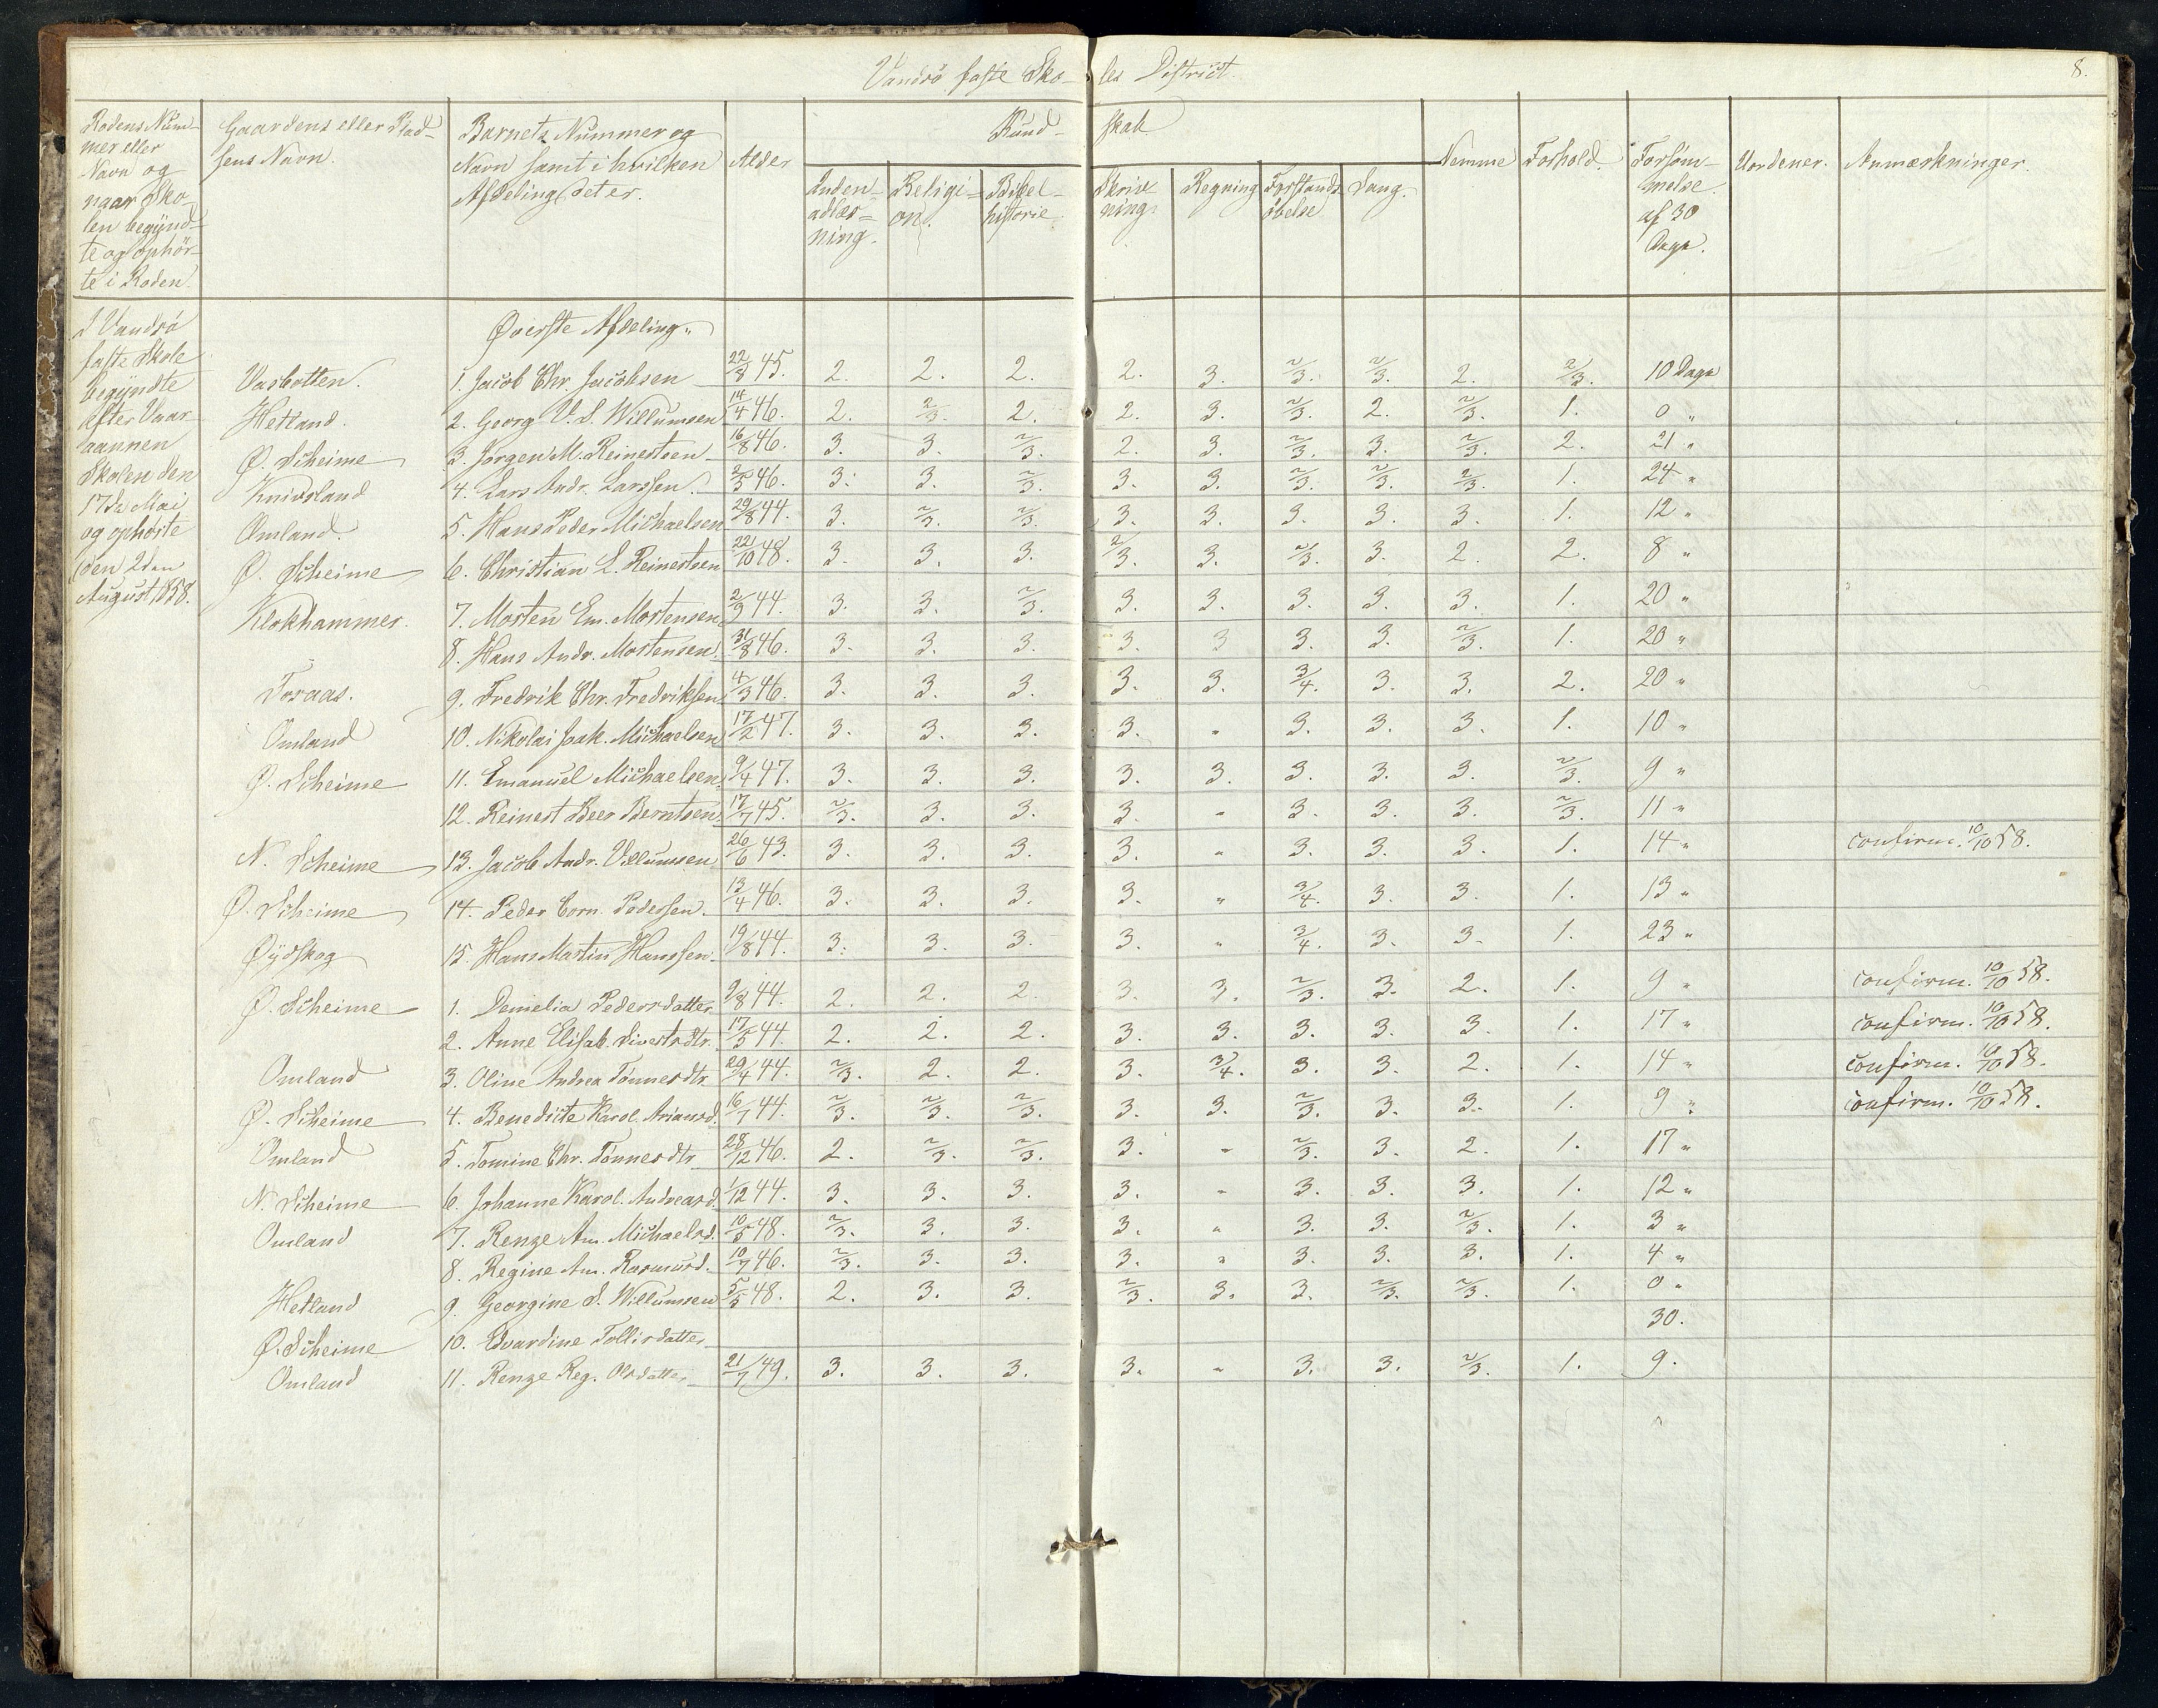 Vandsø faste Sko- les District. 8.
Rodens Num-
mer eller
Navn og
naar Sko-
len begynd-
te og ophör-
te i Roden.
Gaardens eller Plad-
sens Navn.
Barnets Nummer og
Navn samt i hvilken
Afdeling det er.
Alder
Kund- skab
Inden-
adlæs-
ning.
Religi-
on.
Bibel-
historie.
Skriv-
ning.
Regning
Forstands-
øbelse
Sang.
Nemme
Forhold.
Forsöm-
melse.
af 30
Dage.
Uordener.
Anmærkninger.
I Vandsø
faste Skole
begyndte
efter Vaar
aannen
Skolen den
17de Mai
og ophørte
den 2den
August 1858.
Øverste Afdeling.
Vasbotten. 1. Jacob Chr. Jacobsen 22/8 45. 2. 2. 2. 2. 3. 2/3. 2/3. 2. 2/3. 10 Dage
Hetland. 2. Georg V. S. Willumsen 14/4 46. 2. 2/3. 2. 2. 3. 2/3. 2. 2/3. 1. 0 "
Ø. Scheime 3. Jørgen M. Reinertsen 16/8 46. 3. 3. 2/3. 2. 3. 2/3. 3. 2/3. 2. 21 "
Knivsland 4. Lars Andr. Larssen. 2/5 46. 3. 3. 2/3. 3. 3. 2/3. 2/3. 2/3. 1. 24 "
Omland. 5. Hans Peder Michaelsen 29/8 44. 3. 2/3. 2/3. 3. 3. 3. 3. 3. 1. 12 "
Ø. Scheime 6. Christian L. Reinertsen 22/10 48. 3. 3. 3. 2/3. 3. 2/3. 3. 2. 2. 8 "
Klokhammer. 7. Morten Em. Mortensen 2/9 44. 3. 3. 2/3. 3. 3. 3. 3. 3. 1. 20 "
8. Hans Andr. Mortensen. 31/8 46. 3. 3. 3. 3. 3 3. 3. 2/3. 1. 20 "
Foraas. 9. Fredrik Chr. Fredriksen 4/3 46. 3. 3. 3. 3. 3. 3/4. 3. 3. 2. 20 "
Omland 10. Nikolai Isak. Michaelsen 17/2 47. 3. 3. 3. 3. " 3. 3. 3. 1. 10 "
Ø. Scheime 11. Emanuel Michaelsen 9/4 47. 3. 3. 3. 3. 3. 3. 3. 3. 2/3. 9 "
12. Reinert Beer Berntsen 17/7 45. 2/3. 3. 3. 3. " 3. 3. 3. 2/3. 11 "
N. Scheime 13. Jacob Andr. Villumsen 26/6 43. 3. 3. 3. 3. " 3. 3. 3. 1. 14 " confirm. 10/10 58.
Ø. Scheime 14. Peder Corn. Pedersen. 13/4 46. 3. 3. 3. 3. " 3/4. 3. 3. 1. 13 "
Øydskog 15. Hans Martin Hanssen. 19/8 44. 3. 3. 3. 3. " 3/4. 3. 3. 1. 23 "
Ø. Scheime 1. Demelia Pedersdatter 9/8 44. 2. 2. 2. 3. 3. 2/3. 3. 2. 1. 9 " confirm. 10/10 58.
2. Anne Elisab. Sivertsdtr. 17/5 44. 2. 2. 2. 3. 3. 3. 3. 3. 1. 17 " confirm. 10/10 58.
Omland 3. Oline Andrea Tönnesdtr. 29/4 44. 2/3. 2. 2. 3. 3/4. 3. 3. 2. 1. 14 " confirm. 10/10 58.
Ø. Scheime 4. Benedicte Karol. Ariansd. 16/7 44. 2/3. 2/3. 2/3. 3. 3. 2/3. 3. 3. 1. 9 " confirm. 10/10 58.
Omland 5. Tomine Chr. Tönnesdtr 28/12 46. 2. 2/3. 2/3. 3. " 2/3. 3. 2. 1. 17 "
N. Scheime 6. Johanne Karol. Andreasd. 1/12 44. 3. 3. 3. 3. " 3. 3. 3. 1. 12 "
Omland 7. Renze Am. Michaelsd. 10/5 48. 2/3. 3. 3. 3. " 3. 3. 2/3. 1. 3 "
8. Regine Am. Rasmusd. 10/7 46. 2/3. 3. 3. 3. " 3. 3. 3. 1. 4 "
Hetland 9. Georgine S. Willumsen 5/5 48. 2. 3. 3. 2/3. 3. 3. 2/3. 2/3. 1. 0 "
Ø. Scheime 10. Edvardine Tollisdatter 30.
Omland 11. Renze Reg. Olsdatter 21/7 49. 3. 3. 3. 3. " 3. 3. 2/3. 1. 9.